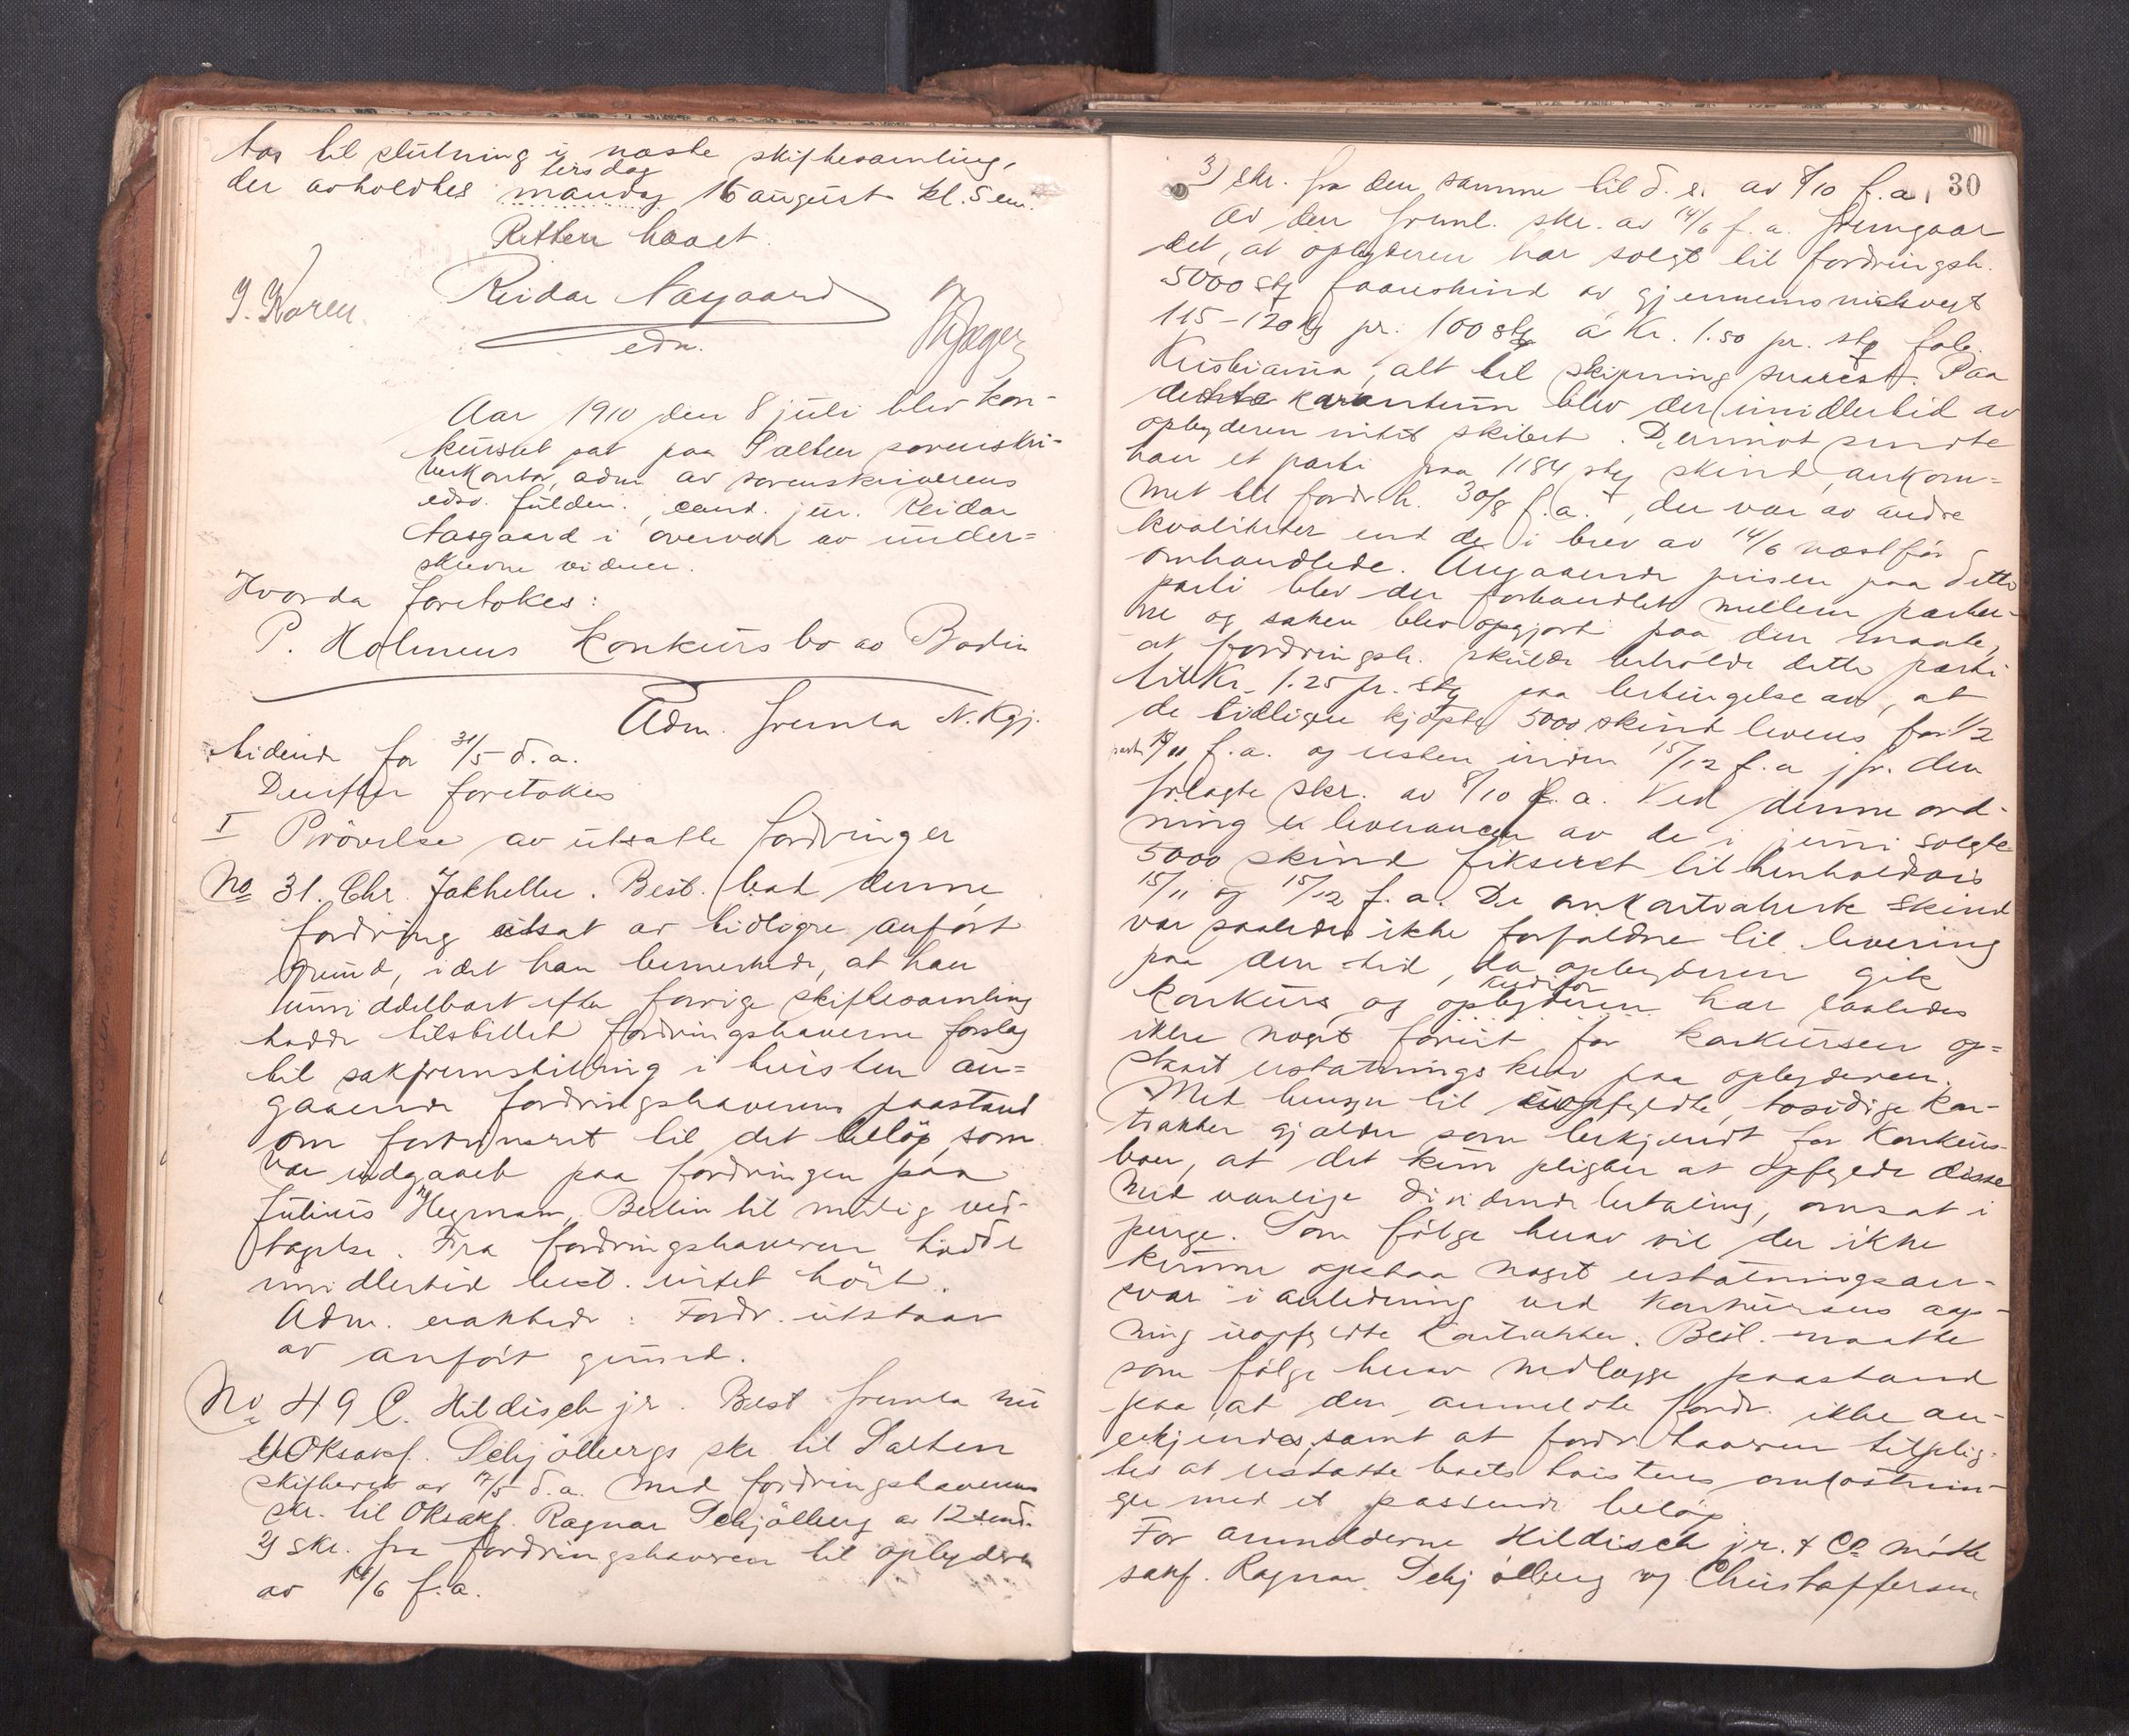 tas til slutning i næste skiftesamling,
tirsdag
der avholdtes mandag 16 august kl. 5 em.
Retten hævet.
J. Koren.
Reidar Aasgaard
edv.
Aar 1910 den 8 juli blev kon-
kursret sat paa Salten sorenskri-
verkontor, adm. av sorenskriverens
edsv. fuldm., cand. jur. Reidar
Aasgaard i overvær av under-
skrevne vidner.
Hvorda foretokes:
P. Holmens konkursbo av Bodin
Adm. fremla N. Kgj.
tidende for 31/5 d.a.
Derefter foretokes
I Prövelse av utsatte fordringer
No 31. Chr. Jakhelln. Best. bad denne
fordring utsat av tidligre anfört
grund, idet han bemerkede, at han
umiddelbart efter forrige skiftesamling
hadde tilstillet fordringshaverne forslag
til sakfremstilling i tvisten an-
gaaende fordringshaverens paastand
om fortrinsret til det beløp, som
var indgaaet paa fordringen paa
Julius Heymann, Berlin til mulig ved-
tagelse. Fra fordringshaveren hadde
imidlertid best. intet hört.
Adm. eragtede: Fordr. utstaar
av anfört grund.
No 49 C. Hildisch jr. Best fremla nu
1) Oksakf. Schjölbergs skr. til Salten
skifteret av 17/5 d.a. med fordringshaverens
skr. til Oksakf. Ragnar Schjölberg av 12 s.md.
2) skr. fra fordringshaveren til opbyderen
av 14/6 f.a.
30
3) skr. fra den samme til d.s. av 8/10 f.a.
Av den freml. skr. av 14/6 f.a. fremgaar
det, at opbyderen har solgt til fordringsh.
5000 stk faareskind av gjennemsnitsvegt
115-120 kg pr. 100 stk á Kr. 1.50 pr. stk fob.
Kristiania, alt til skipning snarest. Paa
dette kvantum blev der imidlertid av
opbyderen intet skibet. Derimot sendte
han et parti paa 1184 stk skind, ankom-
met til fordr.h. 30/8 f.a., der var av andre
kvaliteter end de i brev av 14/6 næstfør
omhandlede. Angaaende prisen paa dette
parti blev der forhandlet mellem parter-
ne og saken blev opgjort paa den maate,
at fordringsh. skulde beholde dette parti
til Kr. 1.25 pr. stk paa betingelse av, at
de tidligere kjøpte 5000 skind leveres for 1/2
15/11 f.a. og resten inden 15/12 f.a jfr. den
frlagte skr. av 8/10 f.a. Ved denne ord-
ning er leverancen av de i juni solgte
5000 skind fikseret til henholdsvis
15/11 og 15/12 f.a. De omkontraherte skind
var saaledes ikke forfaldne til levering
paa den tid, da opbyderen gik
kreditor
konkurs, og opbyderen har saaledes
ikke noget forut for konkursen op-
staat erstatningskrav paa opbyderen.
Med hensyn til uopfyldte, tosidige kon-
trakter gjælder som bekjendt for konkurs-
boer, at det kun pligter at opfylde disse
med vanlige dividende betaling, omsat i
penge. Som følge herav vil der ikke
kunne opstaa noget erstatningsan-
svar i anledning ved konkursens aap-
ning uopfyldte kontrakter. Best. maatte
som følge herav nedlægge paastand
paa, at den anmeldte fordr. ikke an-
erkjendes, samt at fordr.haveren tilplig-
tes at erstatte boets tvistens omkostnin-
ger med et passende beløp
For anmelderne Hildisch jr. & Co møtte
sakf. Ragnar Schjölberg ved Christoffersen